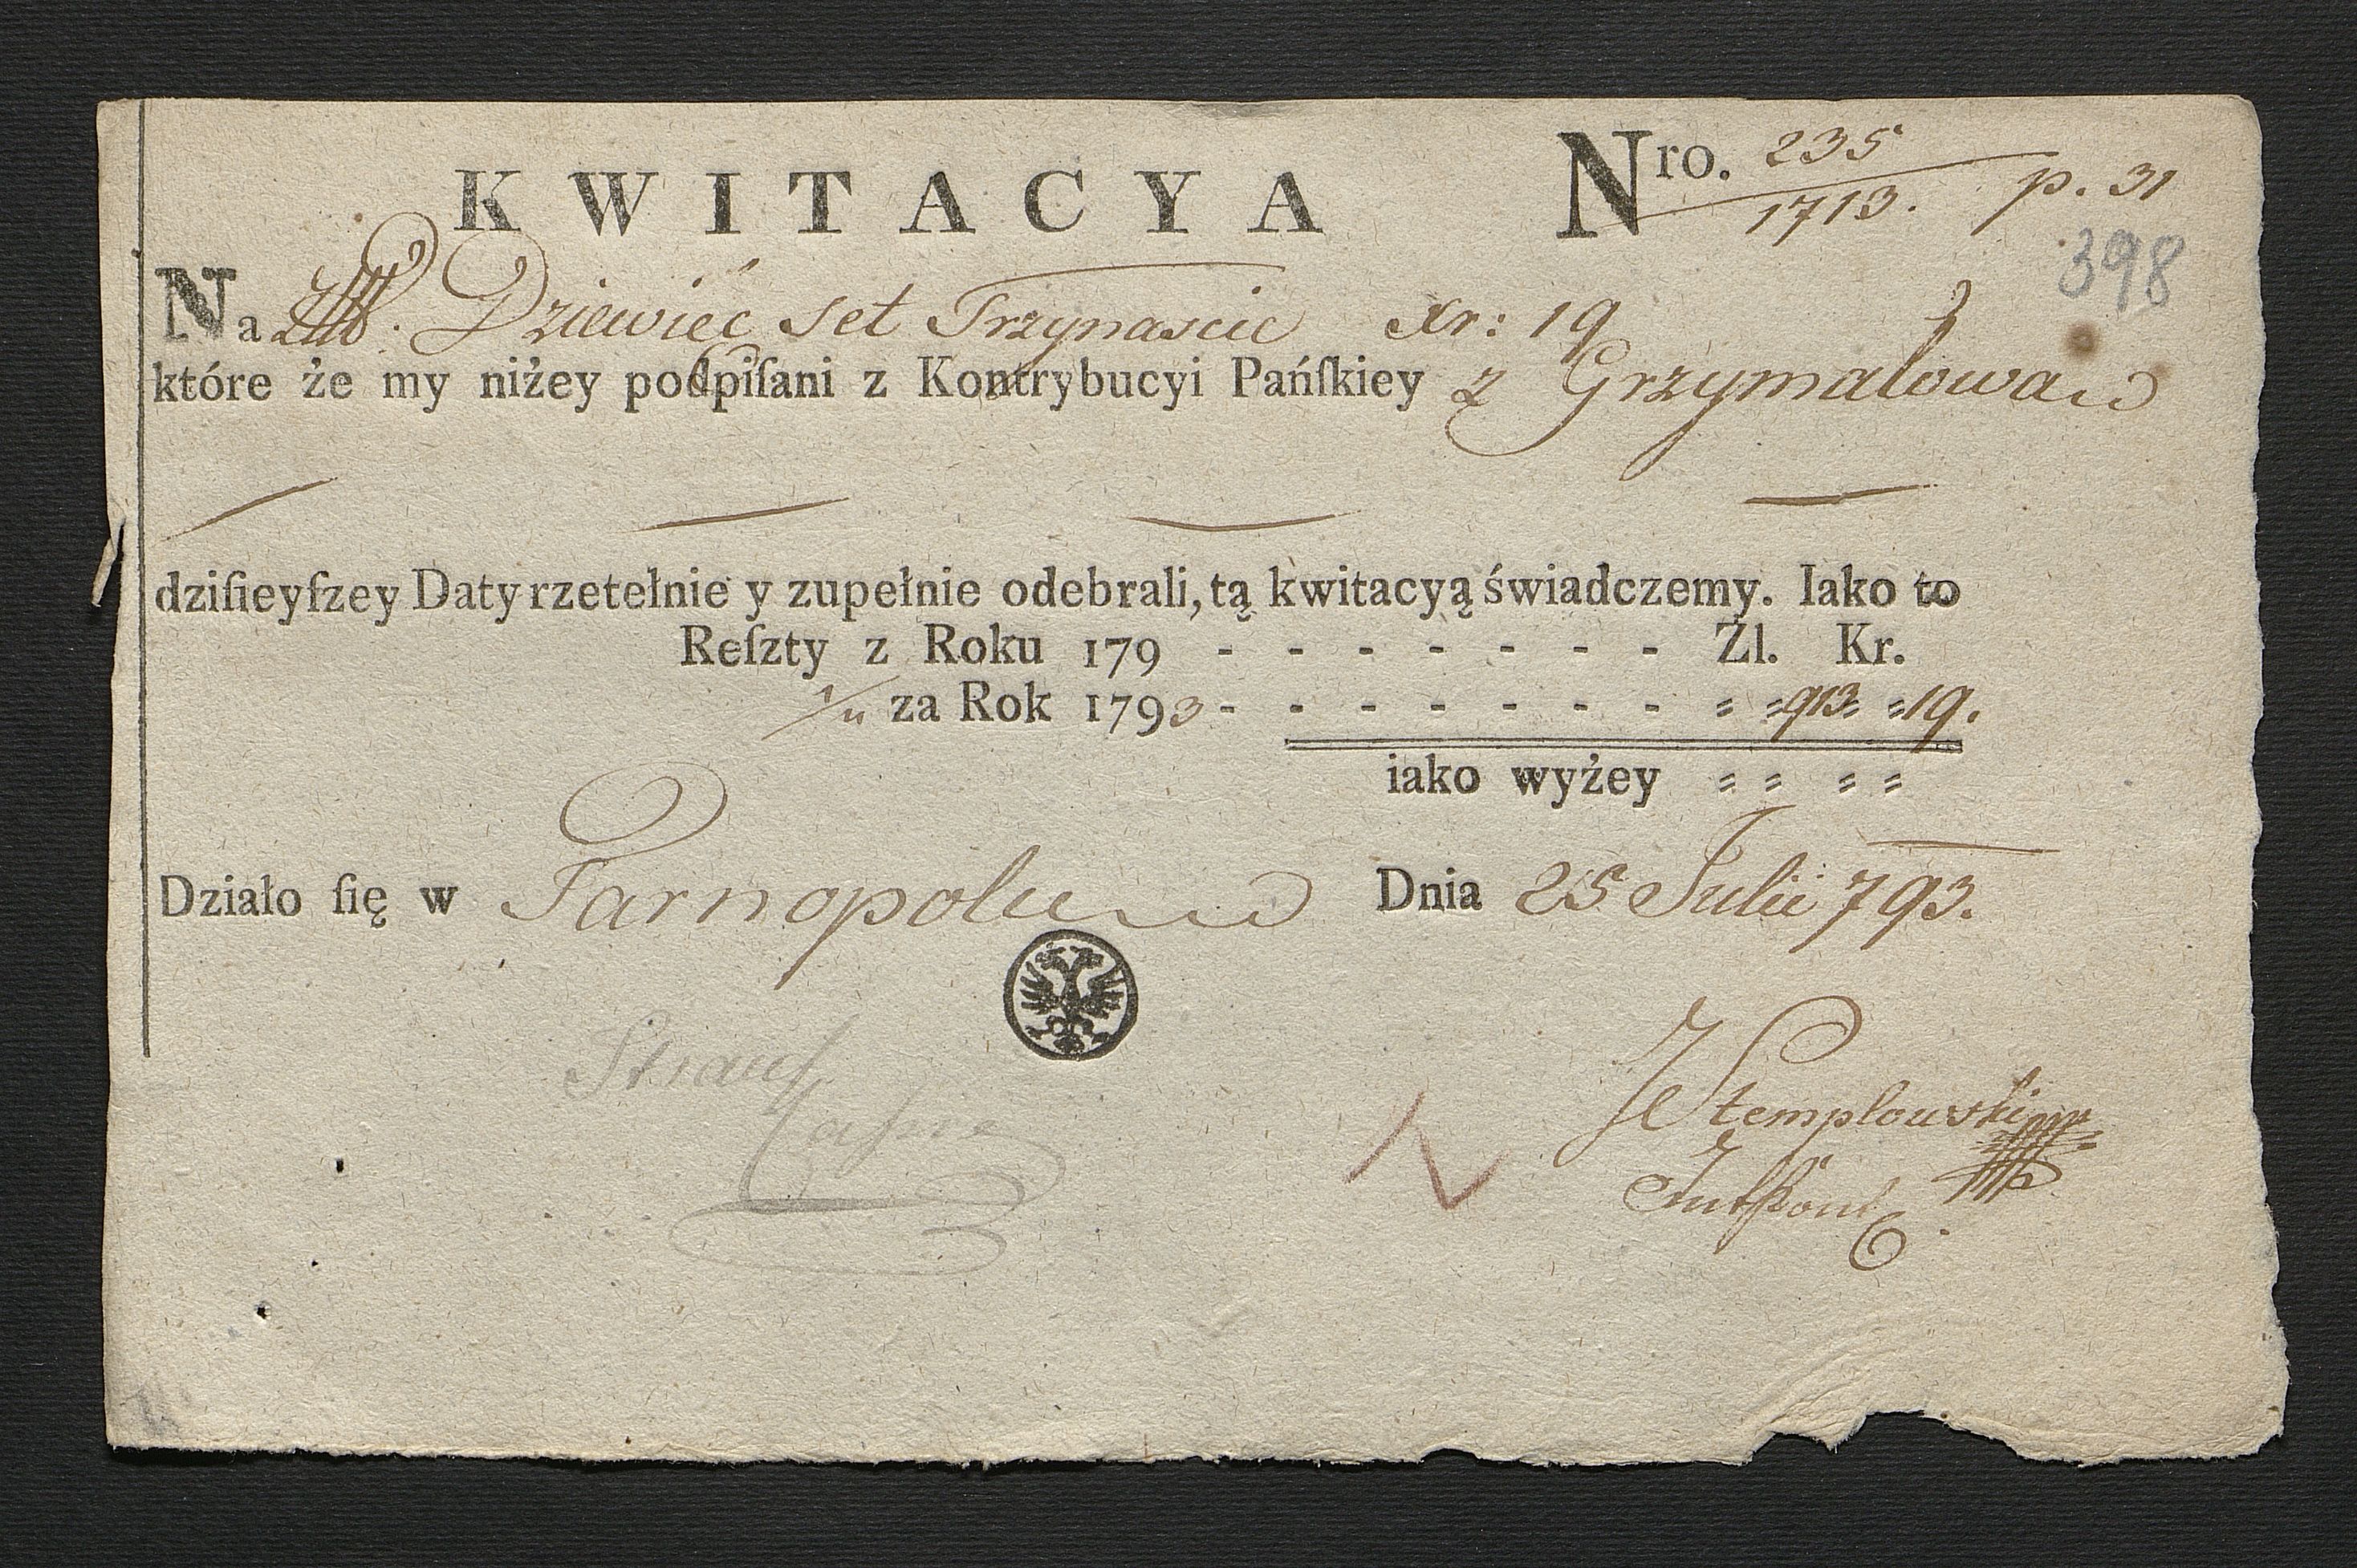 KWITACYA Nro. 235
1713. p. 31
398
Na Dziewięć set Trzynascie Xr: 19
które że my niżey podpiſani z Kontrybucyi Pańſkiey z Grzymałowa
dziſieyſzey Daty rzetelnie y zupełnie odebrali, tą kwitacyą świadczemy. Iako to
Reſzty z Roku 179 - - - - - - - Zl. Kr.
za Rok 1793 - - - - - - - 913 19.
iako wyżey
Działo ſię w Tarnopolu Dnia 25 Julii 793.
Stemplowski